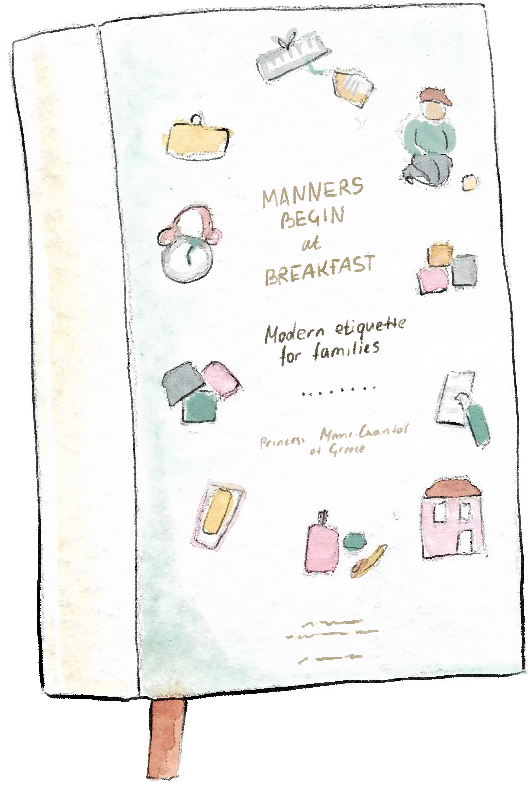 MANNERS
BEGIN
at
BREAKFAST
Modern etiquette
for families
Princess
of Greece